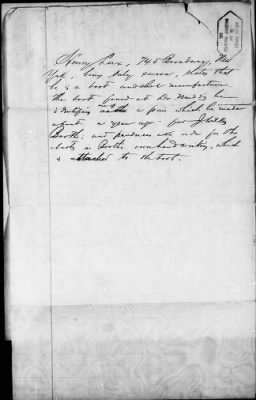 Henry Lux, 745 Broadway, New
York, being duly sworn, states that
he is a boot and shoe manufacturer.
The boot found at Dr Mudd's he
identifies as one of a pair which he made
about a year ago for J Wilkes
Booth, and produces the order for the
boots in Booth's own handwriting, which
is attached to the boot.